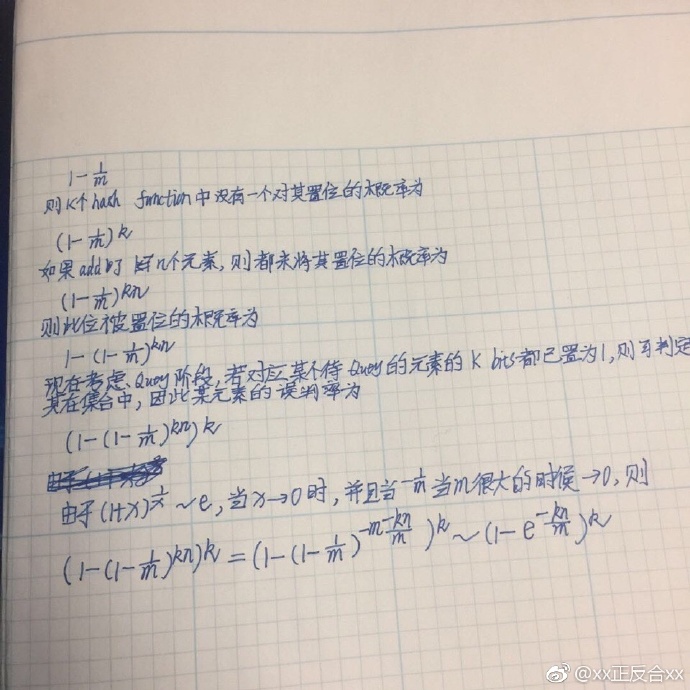 1-1/m
则K个hash function中没有一个对其置位的概率为
(1-1/m)^k
如果add了n个元素,则都未将其置位的概率为
(1-1/m)^kn
则此位被置位的概率为
1-(1-1/m)^kn
现在考虑Query阶段,若对应某个待Query的元素的K bits都已置为1,则可判定
其在集合中,因此某元素的误判率为
(1-(1-1/m)^kn)^k
由于(1+x)^1/x ~ e,当x→0时,并且当-1/m当m很大的时候→0,则
(1-(1-1/m)^kn)^k = (1-(1-1/m)^-m·-kn/m)^k ~ (1-e^-kn/m)^k
@xx正反合xx